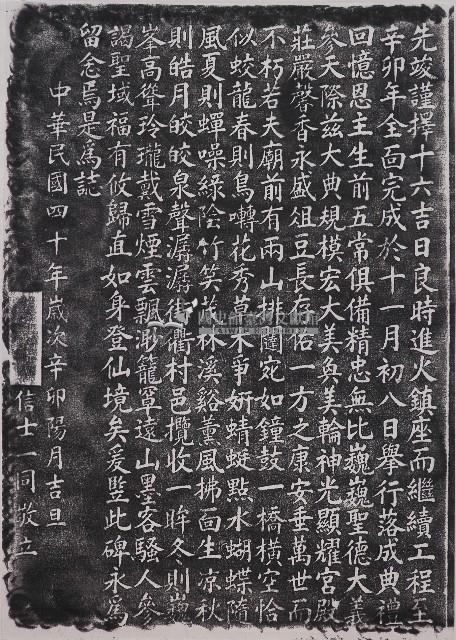 先竣謹擇十六吉日良時進火鎮座而繼續工程至
辛卯年全面完成於十一月初八日舉行落成典禮
回憶恩主生前五常俱備精忠無比巍巍聖德大義
參天際茲大典規模宏大美奐美輪神光顯耀宮殿
莊嚴馨香永盛俎豆長存佑一方之康安垂萬世而
不朽若夫廟前有兩山排闥宛如鐘鼓一橋橫空恰
似蛟龍春則鳥囀花秀草木爭妍蜻蜓點水蝴蝶隨
風夏則蟬噪綠陰竹笑林溪谿薰風拂面生凉秋
則皓月皎皎泉聲潺潺街衢村邑攬收一眸冬則
峯高聳玲瓏戴雪煙雲飄渺籠罩遠山墨客騷人參
謁聖域福有攸歸直如身登仙境矣爰豎此碑永為
留念焉是為誌
中華民國四十年歲次辛卯陽月吉旦
信士一同敬立